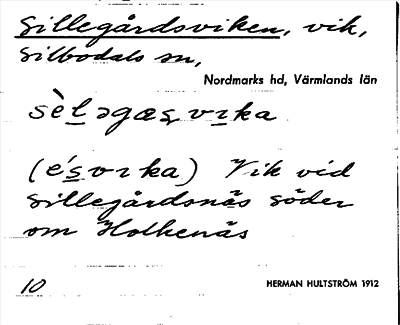 Sillegårdsviken, vik,
Silbodals sn,
Nordmarks hd, Värmlands län
sè̀l̲əgæs̲vɪka
(é's̲vɪka) Vik vid
Sillegårdsnäs söder
om Holkenäs
10
HERMAN HULTSTRÖM 1912